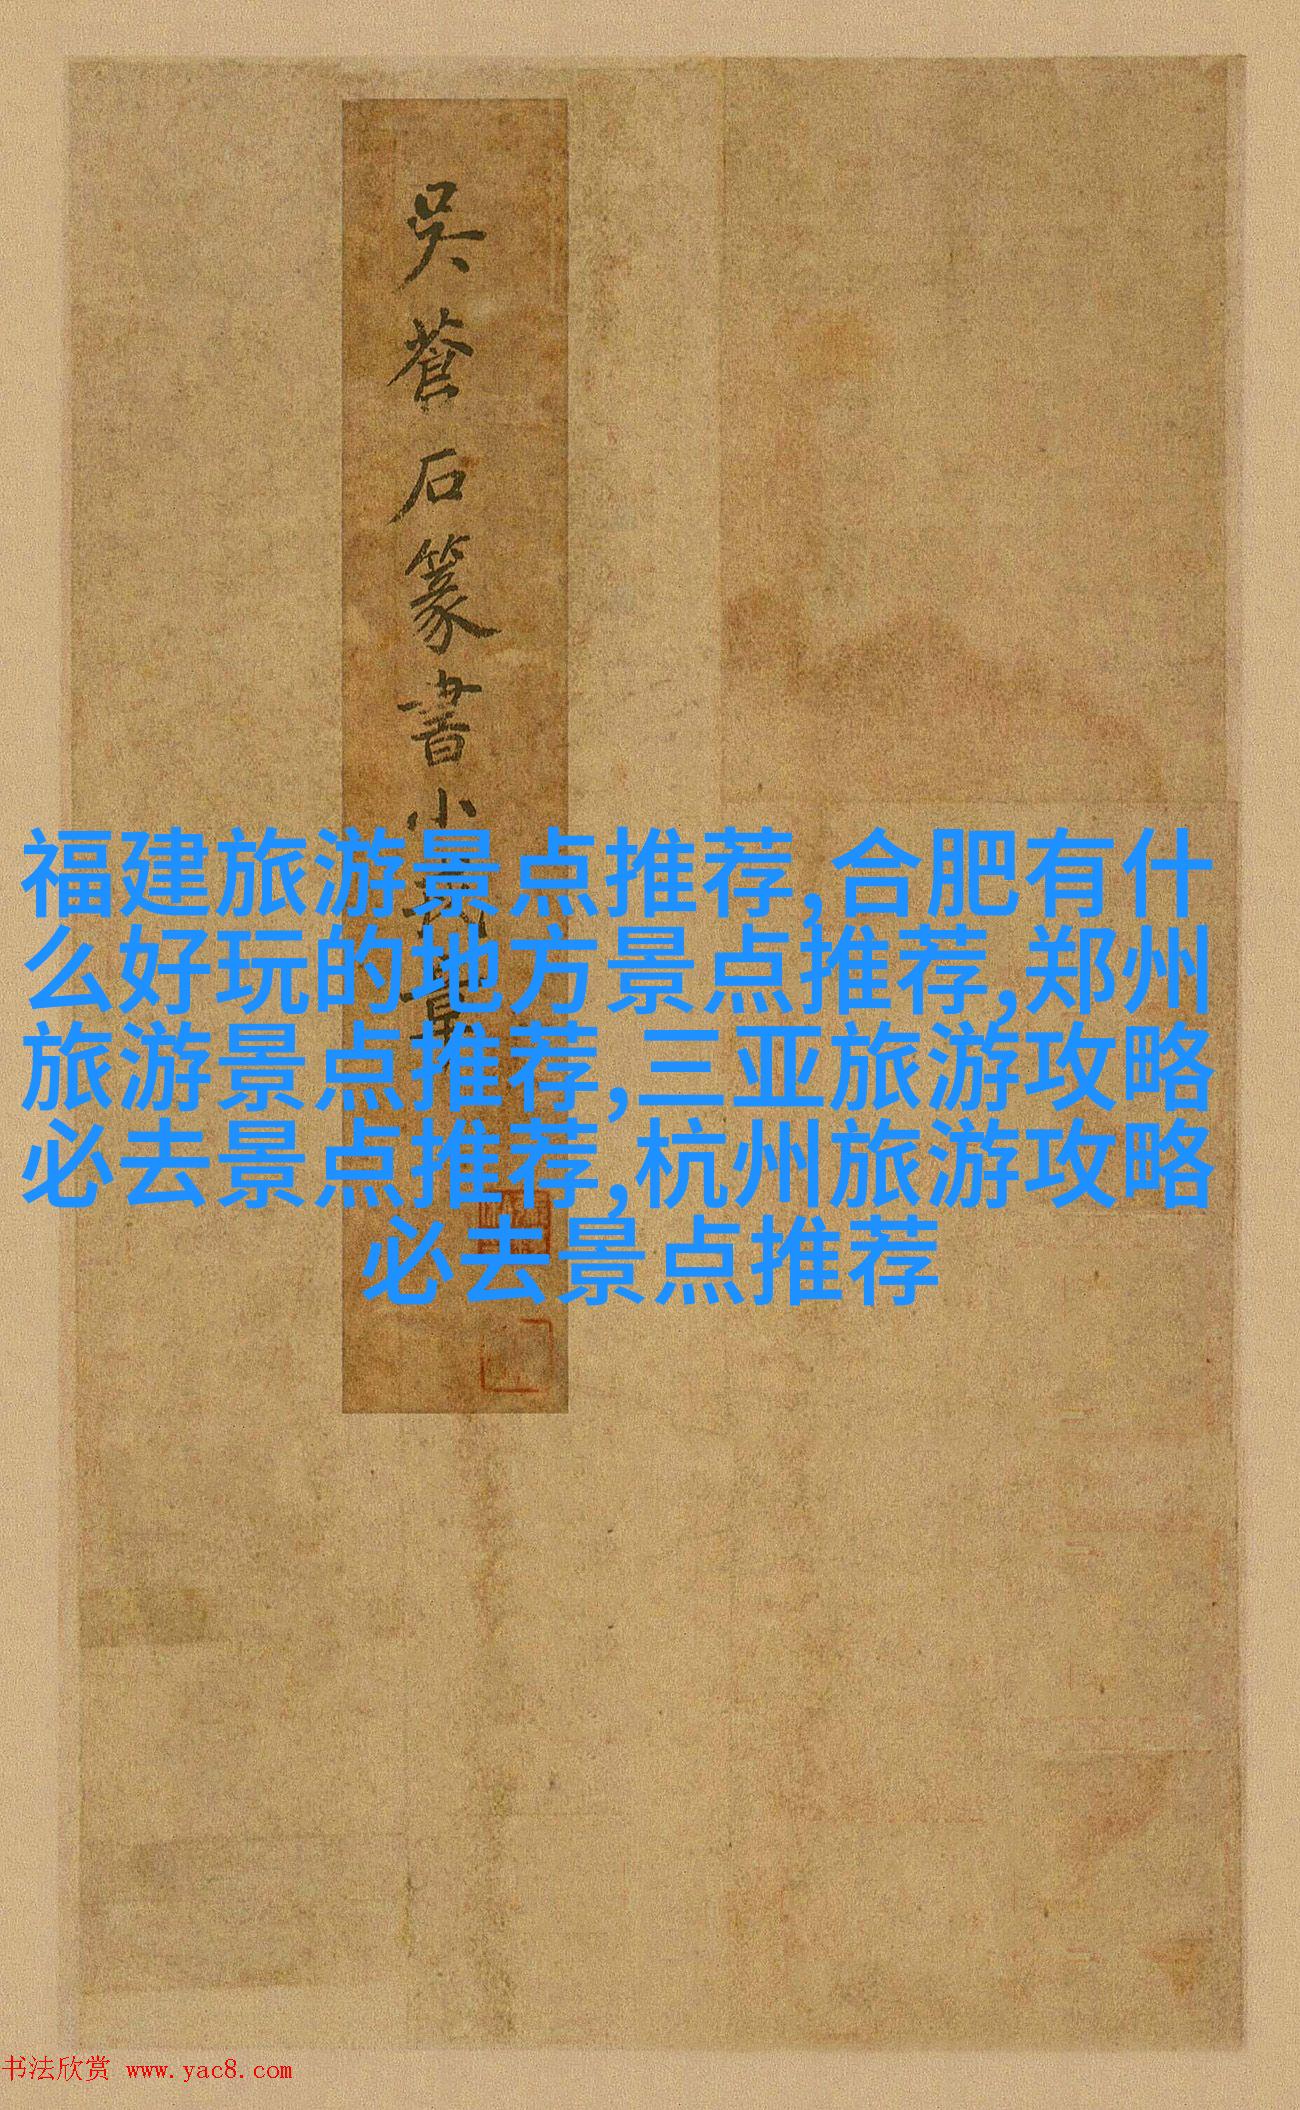 吳蒼石篆書小
福建旅游景点推荐,合肥有什
么好玩的地方景点推荐,郑州
旅游景点推荐,三亚旅游攻略
必去景点推荐,杭州旅游攻略
必去景点推荐
书法欣赏 www.yac8.com